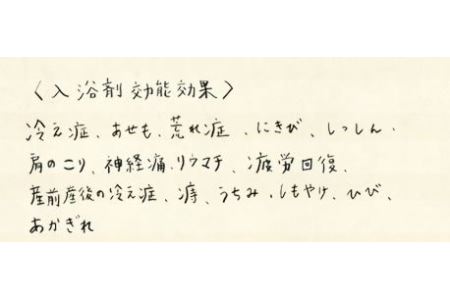 〈入浴剤効能効果〉
冷え症、あせも、荒れ症、にきび、しっしん、
肩のこり、神経痛、リウマチ、疲労回復、
産前産後の冷え症、痔、うちみ、しもやけ、ひび、
あかぎれ